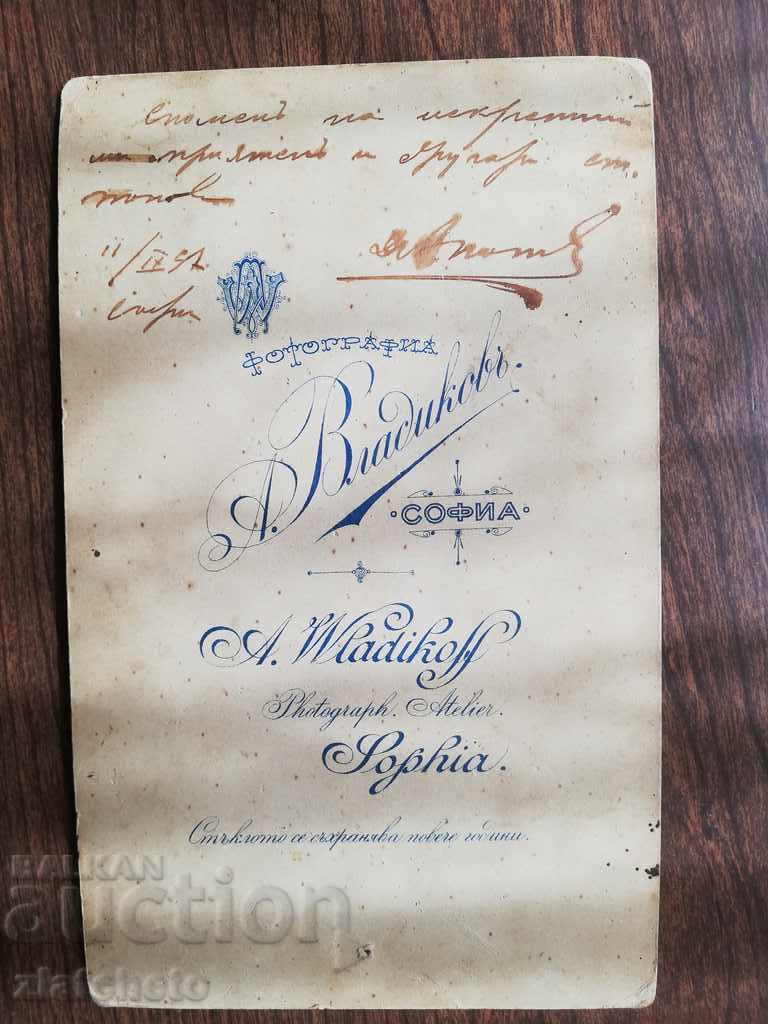 Споменъ на искренний
ми приятель и другарь
11/IX 97
София
ФОТОГРАФИА
А. Владиковъ.
СОФИА
A. Wladikoff
Photograph. Atelier.
Sophia.
Стъклото се съхранява повече години.
BALKAN
auction
zlatcheto